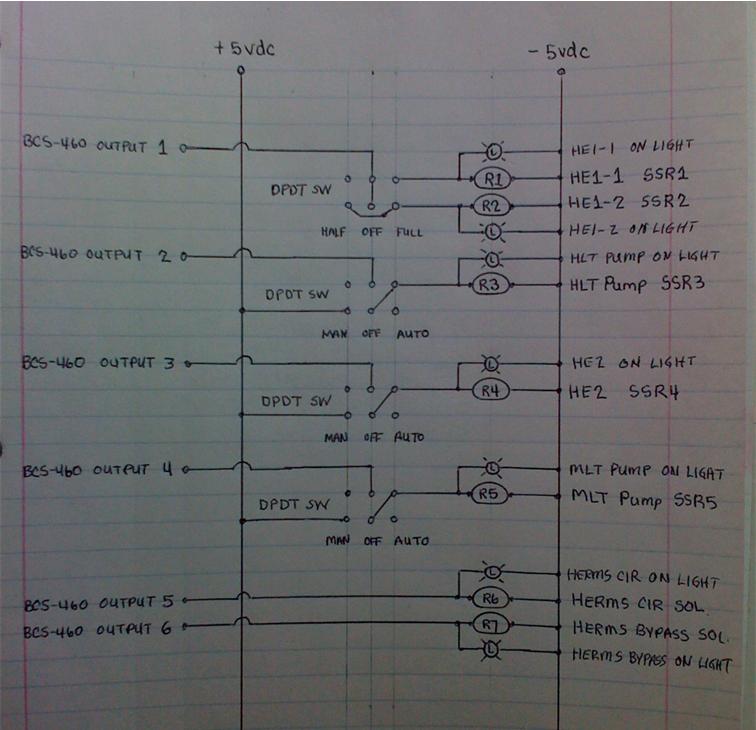 + 5vdc
- 5vdc
BCS-460 OUTPUT 1
L
HE1-1 ON LIGHT
DPDT SW
R1
HE1-1 SSR1
R2
HE1-2 SSR2
HALF OFF FULL
L
HE1-2 ON LIGHT
BCS-460 OUTPUT 2
L
HLT PUMP ON LIGHT
DPDT SW
R3
HLT Pump SSR3
MAN OFF AUTO
BCS-460 OUTPUT 3
L
HE2 ON LIGHT
DPDT SW
R4
HE2 SSR4
MAN OFF AUTO
BCS-460 OUTPUT 4
L
MLT PUMP ON LIGHT
DPDT SW
R5
MLT Pump SSR5
MAN OFF AUTO
L
HERMS CIR ON LIGHT
BCS-460 OUTPUT 5
R6
HERMS CIR SOL.
BCS-460 OUTPUT 6
R7
HERMS BYPASS SOL.
L
HERMS BYPASS ON LIGHT